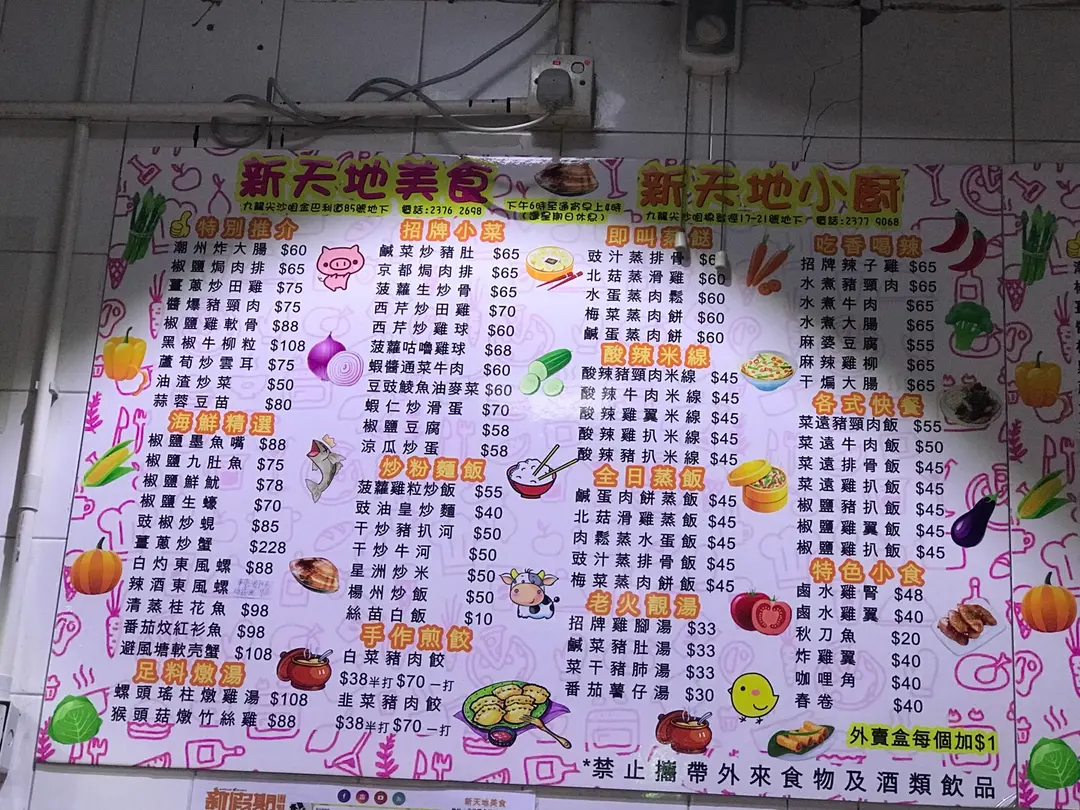 新天地美食
九龍尖沙咀金巴利道85號地下 電話:2376 2698
下午6時至通宵早上4時
(逢星期日休息)
新天地小廚
九龍尖沙咀棉登徑17-21號地下 電話:2377 9068
特別推介
潮州炸大腸 $60
椒鹽焗肉排 $65
薑蔥炒田雞 $75
醬爆豬頸肉 $75
椒鹽雞軟骨 $88
黑椒牛柳粒 $108
蘆荀炒雲耳 $75
油渣炒菜 $50
蒜蓉豆苗 $80
海鮮精選
椒鹽墨魚嘴 $88
椒鹽九肚魚 $75
椒鹽鮮魷 $78
椒鹽生蠔 $70
豉椒炒蜆 $85
薑蔥炒蟹 $228
白灼東風螺 $88
辣酒東風螺
清蒸桂花魚 $98
番茄炆紅衫魚 $98
避風塘軟壳蟹 $108
足料燉湯
螺頭瑤柱燉雞湯 $108
猴頭菇燉竹絲雞 $88
招牌小菜
鹹菜炒豬肚 $65
京都焗肉排 $65
菠蘿生炒骨 $65
西芹炒田雞 $70
西芹炒雞球 $60
菠蘿咕嚕雞球 $68
蝦醬通菜牛肉 $60
豆豉鯪魚油麥菜 $60
蝦仁炒滑蛋 $70
椒鹽豆腐 $58
涼瓜炒蛋 $58
炒粉麵飯
菠蘿雞粒炒飯 $55
豉油皇炒麵 $40
干炒豬扒河 $50
干炒牛河 $50
星洲炒米 $50
楊州炒飯 $50
絲苗白飯 $10
手作煎餃
白菜豬肉餃
$38半打 $70一打
韭菜豬肉餃
$38半打 $70一打
即叫蒸餸
豉汁蒸排骨
北菇蒸滑雞 $60
水蛋蒸肉鬆 $60
梅菜蒸肉餅 $60
鹹蛋蒸肉餅 $60
酸辣米線
酸辣豬頸肉米線 $45
酸辣牛肉米線 $45
酸辣雞翼米線 $45
酸辣雞扒米線 $45
酸辣豬扒米線 $45
全日蒸飯
鹹蛋肉餅蒸飯 $45
北菇滑雞蒸飯 $45
肉鬆蒸水蛋飯 $45
豉汁蒸排骨飯 $45
梅菜蒸肉餅飯 $45
老火靚湯
招牌雞腳湯 $33
鹹菜豬肚湯 $33
菜干豬肺湯 $33
番茄薯仔湯 $30
吃香喝辣
招牌辣子雞 $65
水煮豬頸肉 $65
水煮牛肉 $65
水煮大腸 $65
麻婆豆腐 $55
麻辣雞柳 $65
干煸大腸 $65
各式快餐
菜遠豬頸肉飯 $55
菜遠牛肉飯 $50
菜遠排骨飯 $45
菜遠雞扒飯 $45
椒鹽豬扒飯 $45
椒鹽雞翼飯 $45
椒鹽雞扒飯 $45
特色小食
鹵水雞腎 $48
鹵水雞翼 $40
秋刀魚 $20
炸雞翼 $40
咖哩角 $40
春卷 $40
外賣盒每個加$1
*禁止攜帶外來食物及酒類飲品
新假期
新天地美食